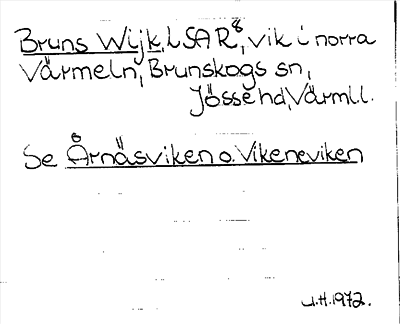 Bruns Wijk, LSA R⁸, vik i norra
Värmeln, Brunskogs sn,
Jösse hd, Värml.l.
Se Årnäsviken o. Vikeneviken
U.H. 1972.